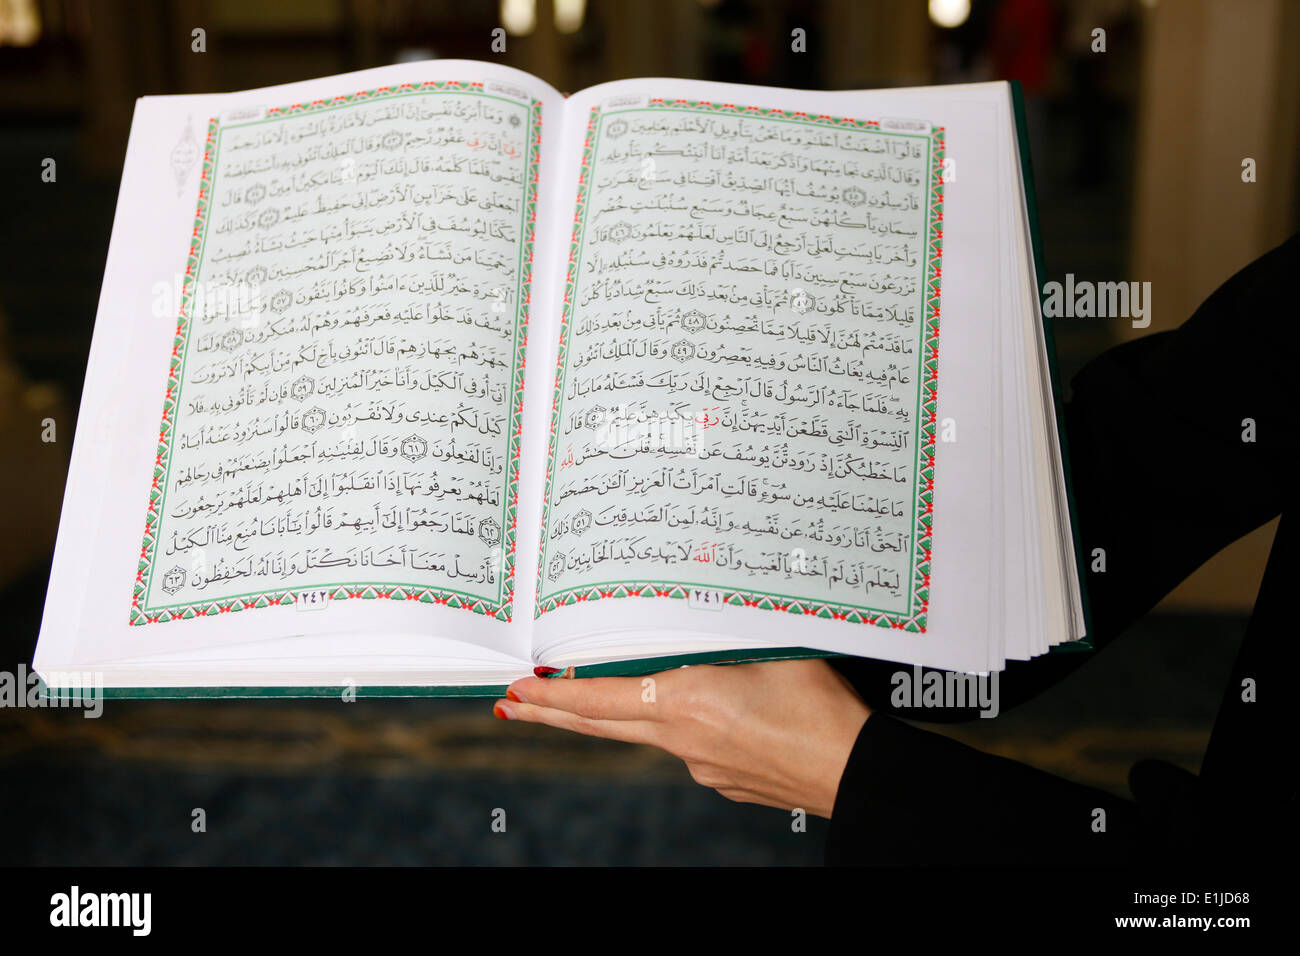 قَالُوٓاْ أَضْغَٰثُ أَحْلَٰمٖۖ وَمَا نَحْنُ بِتَأْوِيلِ ٱلْأَحْلَٰمِ بِعَٰلِمِينَ ٤٤
وَقَالَ ٱلَّذِي نَجَا مِنْهُمَا وَٱدَّكَرَ بَعْدَ أُمَّةٍ أَنَا۠ أُنَبِّئُكُم بِتَأْوِيلِهِۦ
فَأَرْسِلُونِ ٤٥ يُوسُفُ أَيُّهَا ٱلصِّدِّيقُ أَفْتِنَا فِي سَبْعِ بَقَرَٰتٖ
سِمَانٖ يَأْكُلُهُنَّ سَبْعٌ عِجَافٞ وَسَبْعِ سُنۢبُلَٰتٍ خُضْرٖ
وَأُخَرَ يَابِسَٰتٖ لَّعَلِّيٓ أَرْجِعُ إِلَى ٱلنَّاسِ لَعَلَّهُمْ يَعْلَمُونَ ٤٦ قَالَ
تَزْرَعُونَ سَبْعَ سِنِينَ دَأَبٗا فَمَا حَصَدتُّمْ فَذَرُوهُ فِي سُنۢبُلِهِۦٓ إِلَّا
قَلِيلٗا مِّمَّا تَأْكُلُونَ ٤٧ ثُمَّ يَأْتِي مِنۢ بَعْدِ ذَٰلِكَ سَبْعٞ شِدَادٞ يَأْكُلْنَ
مَا قَدَّمْتُمْ لَهُنَّ إِلَّا قَلِيلٗا مِّمَّا تُحْصِنُونَ ٤٨ ثُمَّ يَأْتِي مِنۢ بَعْدِ ذَٰلِكَ
عَامٞ فِيهِ يُغَاثُ ٱلنَّاسُ وَفِيهِ يَعْصِرُونَ ٤٩ وَقَالَ ٱلْمَلِكُ ٱئْتُونِي
بِهِۦۖ فَلَمَّا جَآءَهُ ٱلرَّسُولُ قَالَ ٱرْجِعْ إِلَىٰ رَبِّكَ فَسْـَٔلْهُ مَا بَالُ
ٱلنِّسْوَةِ ٱلَّٰتِي قَطَّعْنَ أَيْدِيَهُنَّۚ إِنَّ رَبِّي بِكَيْدِهِنَّ عَلِيمٞ ٥٠ قَالَ
مَا خَطْبُكُنَّ إِذْ رَٰوَدتُّنَّ يُوسُفَ عَن نَّفْسِهِۦۚ قُلْنَ حَٰشَ لِلَّهِ
مَا عَلِمْنَا عَلَيْهِ مِن سُوٓءٖۚ قَالَتِ ٱمْرَأَتُ ٱلْعَزِيزِ ٱلْـَٰٔنَ حَصْحَصَ
ٱلْحَقُّ أَنَا۠ رَٰوَدتُّهُۥ عَن نَّفْسِهِۦ وَإِنَّهُۥ لَمِنَ ٱلصَّٰدِقِينَ ٥١ ذَٰلِكَ
لِيَعْلَمَ أَنِّي لَمْ أَخُنْهُ بِٱلْغَيْبِ وَأَنَّ ٱللَّهَ لَا يَهْدِي كَيْدَ ٱلْخَآئِنِينَ ٥٢
٢٤١
۞ وَمَآ أُبَرِّئُ نَفْسِيٓۚ إِنَّ ٱلنَّفْسَ لَأَمَّارَةُۢ بِٱلسُّوٓءِ إِلَّا مَا رَحِمَ
رَبِّيٓۚ إِنَّ رَبِّي غَفُورٞ رَّحِيمٞ ٥٣ وَقَالَ ٱلْمَلِكُ ٱئْتُونِي بِهِۦٓ أَسْتَخْلِصْهُ
لِنَفْسِيۖ فَلَمَّا كَلَّمَهُۥ قَالَ إِنَّكَ ٱلْيَوْمَ لَدَيْنَا مَكِينٌ أَمِينٞ ٥٤ قَالَ
ٱجْعَلْنِي عَلَىٰ خَزَآئِنِ ٱلْأَرْضِۖ إِنِّي حَفِيظٌ عَلِيمٞ ٥٥ وَكَذَٰلِكَ
مَكَّنَّا لِيُوسُفَ فِي ٱلْأَرْضِ يَتَبَوَّأُ مِنْهَا حَيْثُ يَشَآءُۚ نُصِيبُ
بِرَحْمَتِنَا مَن نَّشَآءُۖ وَلَا نُضِيعُ أَجْرَ ٱلْمُحْسِنِينَ ٥٦ وَلَأَجْرُ
ٱلْأٓخِرَةِ خَيْرٞ لِّلَّذِينَ ءَامَنُواْ وَكَانُواْ يَتَّقُونَ ٥٧ وَجَآءَ إِخْوَةُ
يُوسُفَ فَدَخَلُواْ عَلَيْهِ فَعَرَفَهُمْ وَهُمْ لَهُۥ مُنكِرُونَ ٥٨ وَلَمَّا
جَهَّزَهُم بِجَهَازِهِمْ قَالَ ٱئْتُونِي بِأَخٖ لَّكُم مِّنْ أَبِيكُمْۚ أَلَا تَرَوْنَ
أَنِّيٓ أُوفِي ٱلْكَيْلَ وَأَنَا۠ خَيْرُ ٱلْمُنزِلِينَ ٥٩ فَإِن لَّمْ تَأْتُونِي بِهِۦ فَلَا
كَيْلَ لَكُمْ عِندِي وَلَا تَقْرَبُونِ ٦٠ قَالُواْ سَنُرَٰوِدُ عَنْهُ أَبَاهُ
وَإِنَّا لَفَٰعِلُونَ ٦١ وَقَالَ لِفِتْيَٰنِهِ ٱجْعَلُواْ بِضَٰعَتَهُمْ فِي رِحَالِهِمْ
لَعَلَّهُمْ يَعْرِفُونَهَآ إِذَا ٱنقَلَبُوٓاْ إِلَىٰٓ أَهْلِهِمْ لَعَلَّهُمْ يَرْجِعُونَ
٦٢ فَلَمَّا رَجَعُوٓاْ إِلَىٰٓ أَبِيهِمْ قَالُواْ يَٰٓأَبَانَا مُنِعَ مِنَّا ٱلْكَيْلُ
فَأَرْسِلْ مَعَنَآ أَخَانَا نَكْتَلْ وَإِنَّا لَهُۥ لَحَٰفِظُونَ ٦٣
٢٤٢
alamy
alamy
www.alamy.com
E1JD68